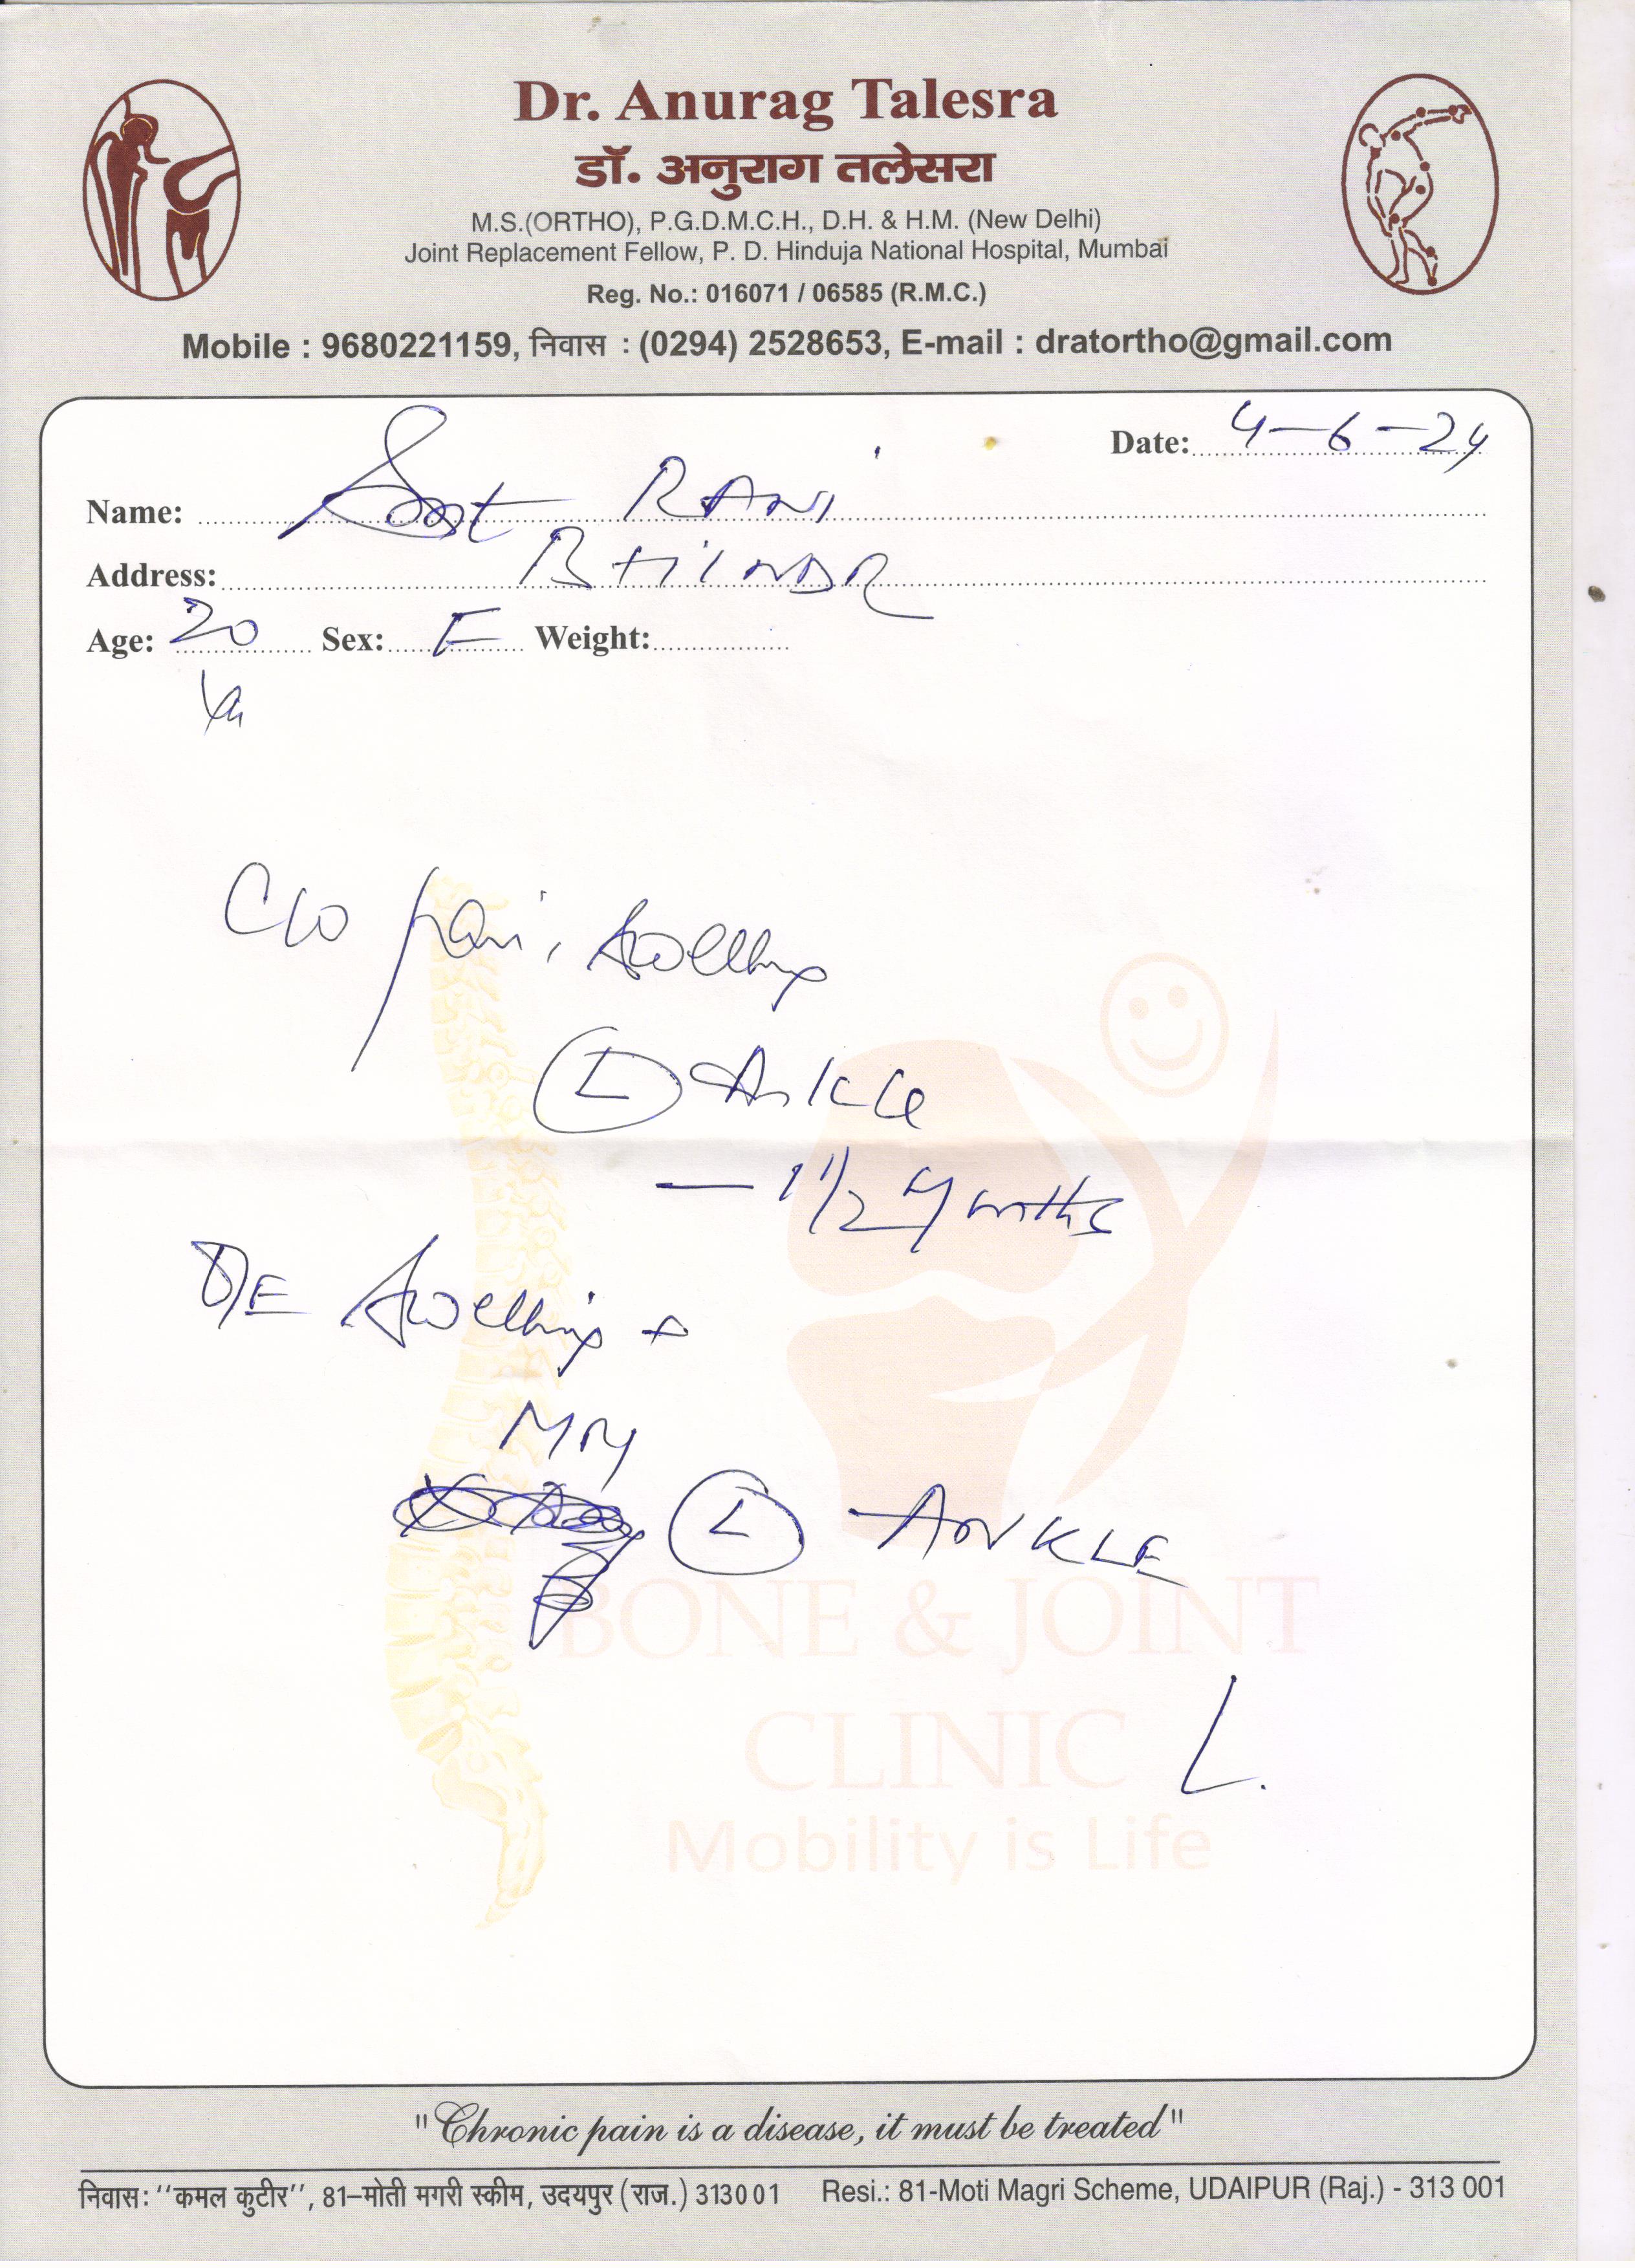 Dr. Anurag Talesra
डॉ. अनुराग तलेसरा
M.S.(ORTHO), P.G.D.M.C.H., D.H. & H.M. (New Delhi)
Joint Replacement Fellow, P. D. Hinduja National Hospital, Mumbai
Reg. No.: 016071 / 06585 (R.M.C.)
Mobile : 9680221159, निवास : (0294) 2528653, E-mail : dratortho@gmail.com
Date: 4-6-24
Name: RANI
Address:
Age: 20 Sex: F Weight:
C/O pain, swelling
L Ankle
— 1 1/2 months
O/E swelling +
L ANKLE
BONE & JOINT
CLINIC
Mobility is Life
"Chronic pain is a disease, it must be treated"
निवास: ‘‘कमल कुटीर’’, 81–मोती मगरी स्कीम, उदयपुर (राज.) 313001 Resi.: 81-Moti Magri Scheme, UDAIPUR (Raj.) - 313 001